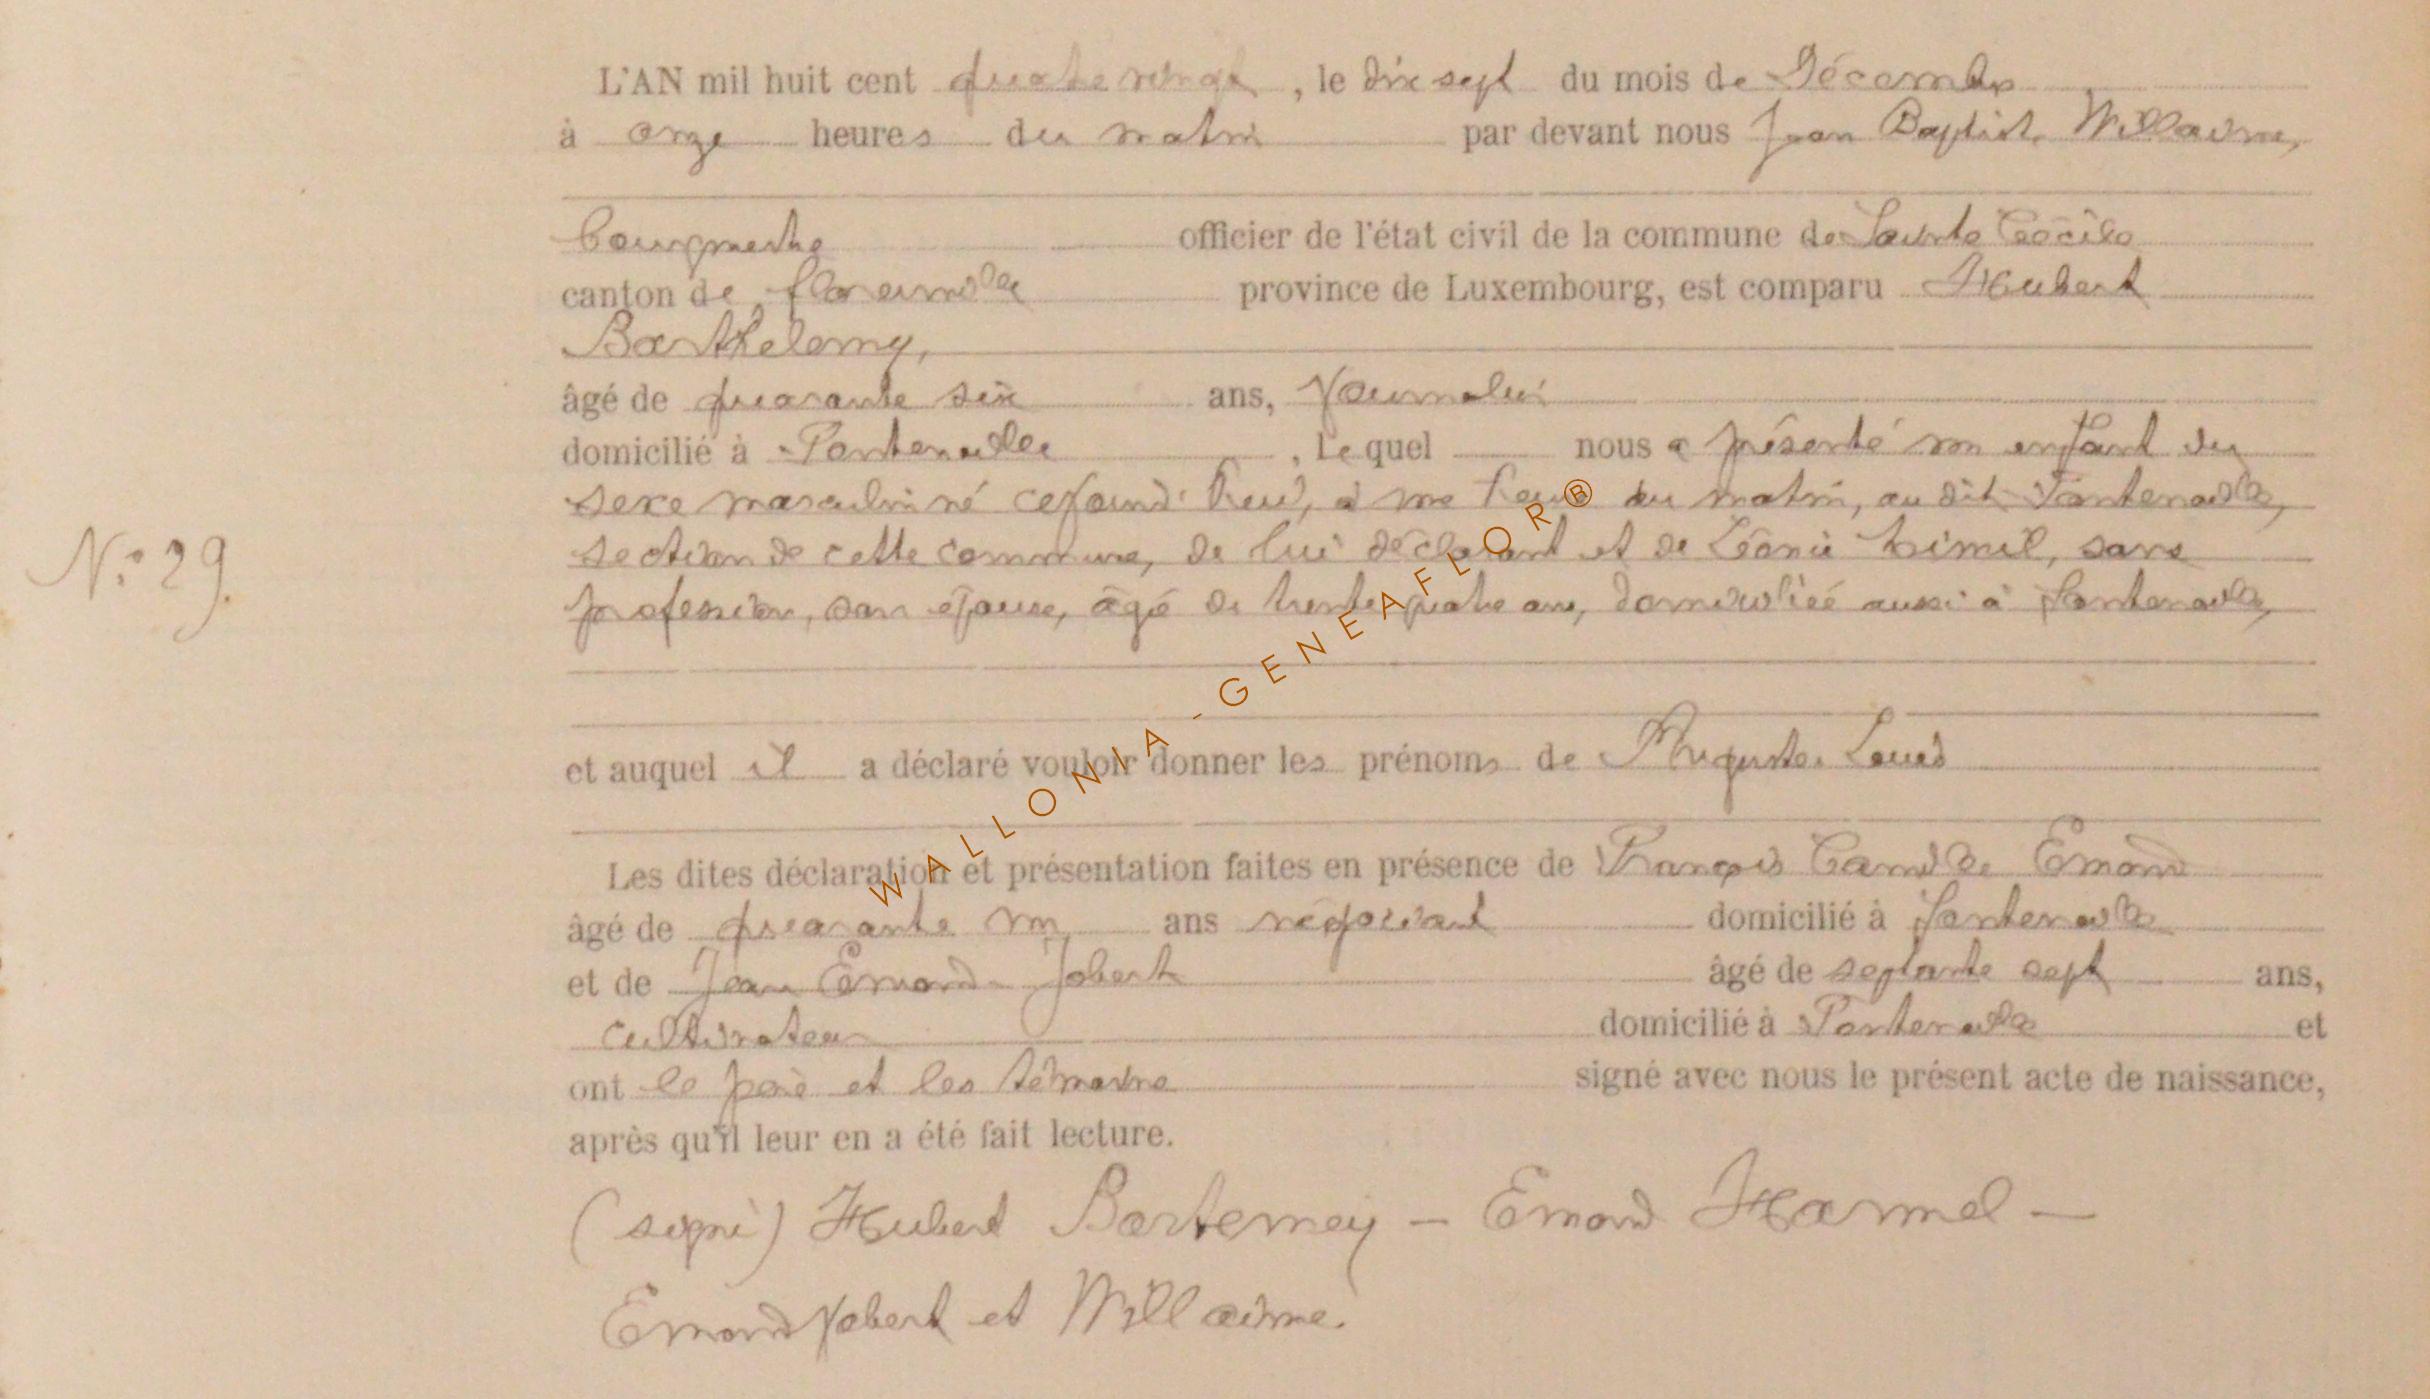 L'AN mil huit cent quatre vingt, le dix sept du mois de Décembre
à onze heures du matin par devant nous Jean Baptiste Willaime,
bourgmestre officier de l'état civil de la commune de Sainte Cécile
canton de florenville province de Luxembourg, est comparu Hubert
Barthelemy,
âgé de quarante six ans, Journalier
domicilié à Fontenoille, Le quel nous a présenté un enfant du
sexe masculin né cejourd'hui, à une heure du matin, au dit Fontenoille,
section de cette commune, de lui déclarant et de Léonie, sans
profession, son épouse, âgé de trente quatre ans, domiciliée aussi à Fontenoille,
N° 29.
et auquel il a déclaré vouloir donner les prénoms de Auguste Louis
Les dites déclaration et présentation faites en présence de François Camille Emond
âgé de quarante un ans négociant domicilié à Fontenoille
et de Jean Emond Jobert âgé de septante sept ans,
cultivateur domicilié à Fontenoille et
ont le père et les témoins signé avec nous le présent acte de naissance,
après qu'il leur en a été fait lecture.
(signé) Hubert Bartemey — Emond Harmel —
Emond Jobert et Willaime.
WALLONIA-GENEAFLOR®